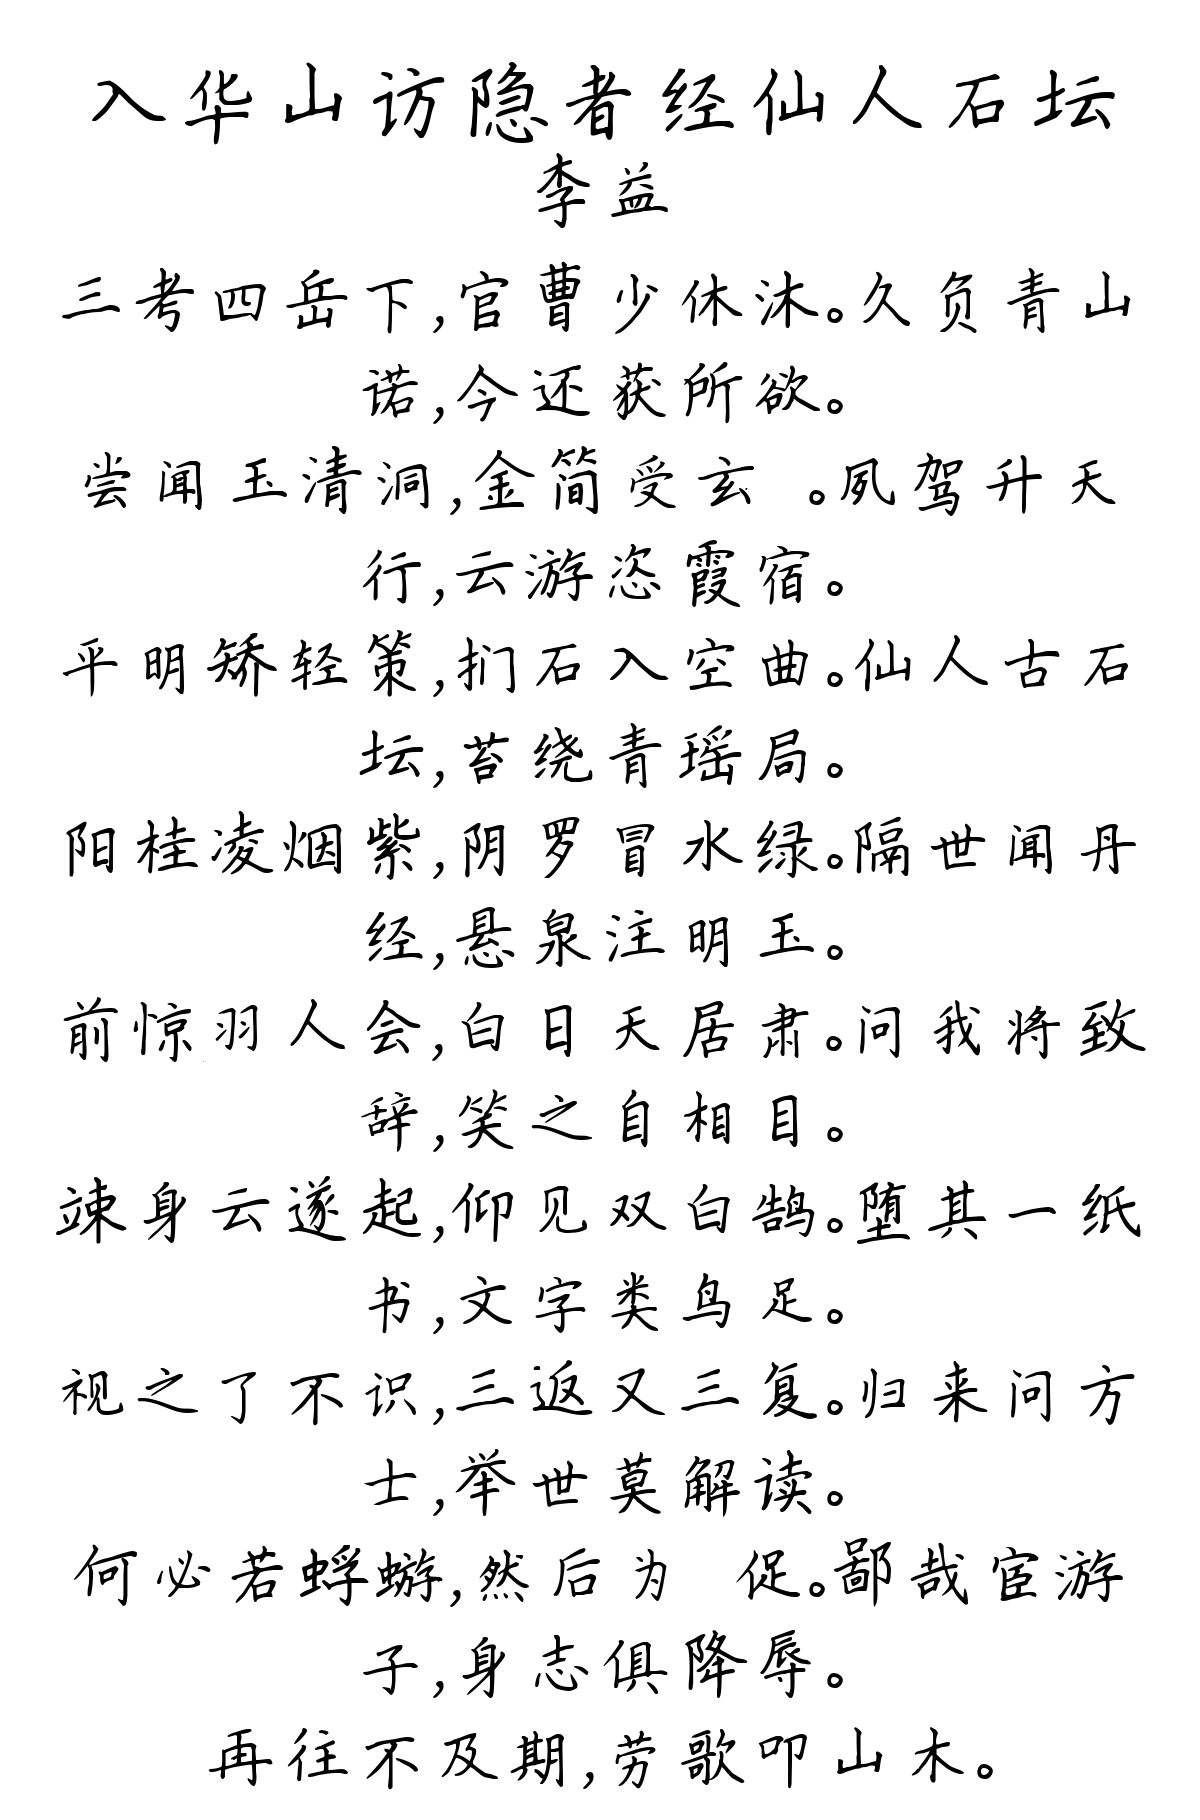 入华山访隐者经仙人石坛
李益
三考四岳下,官曹少休沐。久负青山
诺,今还获所欲。
尝闻玉清洞,金简受玄 。夙驾升天
行,云游恣霞宿。
平明矫轻策,扪石入空曲。仙人古石
坛,苔绕青瑶局。
阳桂凌烟紫,阴罗冒水绿。隔世闻丹
经,悬泉注明玉。
前惊羽人会,白日天居肃。问我将致
辞,笑之自相目。
竦身云遂起,仰见双白鹄。堕其一纸
书,文字类鸟足。
视之了不识,三返又三复。归来问方
士,举世莫解读。
何必若蜉蝣,然后为 促。鄙哉宦游
子,身志俱降辱。
再往不及期,劳歌叩山木。